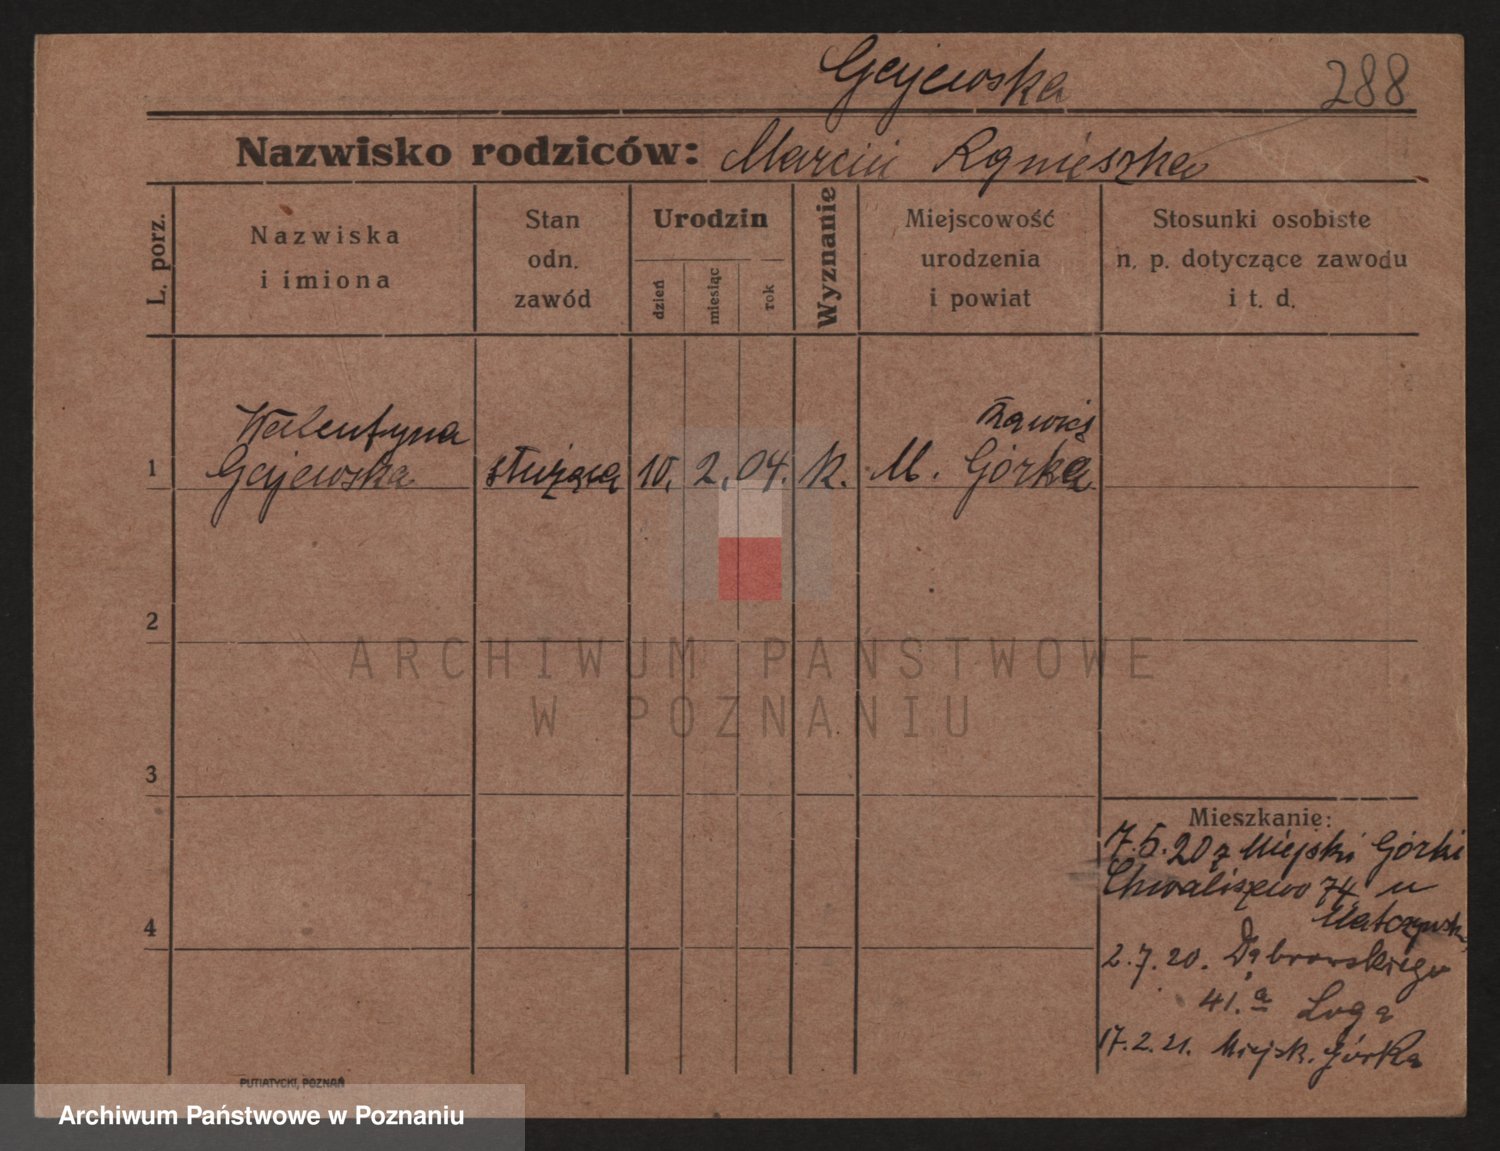 Gejewska
288
Nazwisko rodziców: Marcin Agnieszka
L. porz.
Nazwiska
i imiona
Stan
odn.
zawód
Urodzin
dzień
miesiąc
rok
Wyznanie
Miejscowość
urodzenia
i powiat
Stosunki osobiste
n. p. dotyczące zawodu
i t. d.
1
Walentyna
Gejewska
służąca
10. 2. 04.
k.
M. Górka
2
3
4
Mieszkanie:
7.5.20 z Miejski Górki
Chwaliszewo 74 u
2.7.20. Dąbrowskiego
41.a
17.2.21. Miejsk. Górka
PUTIATYCKI, POZNAŃ
ARCHIWUM PAŃSTWOWE
W POZNANIU
Archiwum Państwowe w Poznaniu